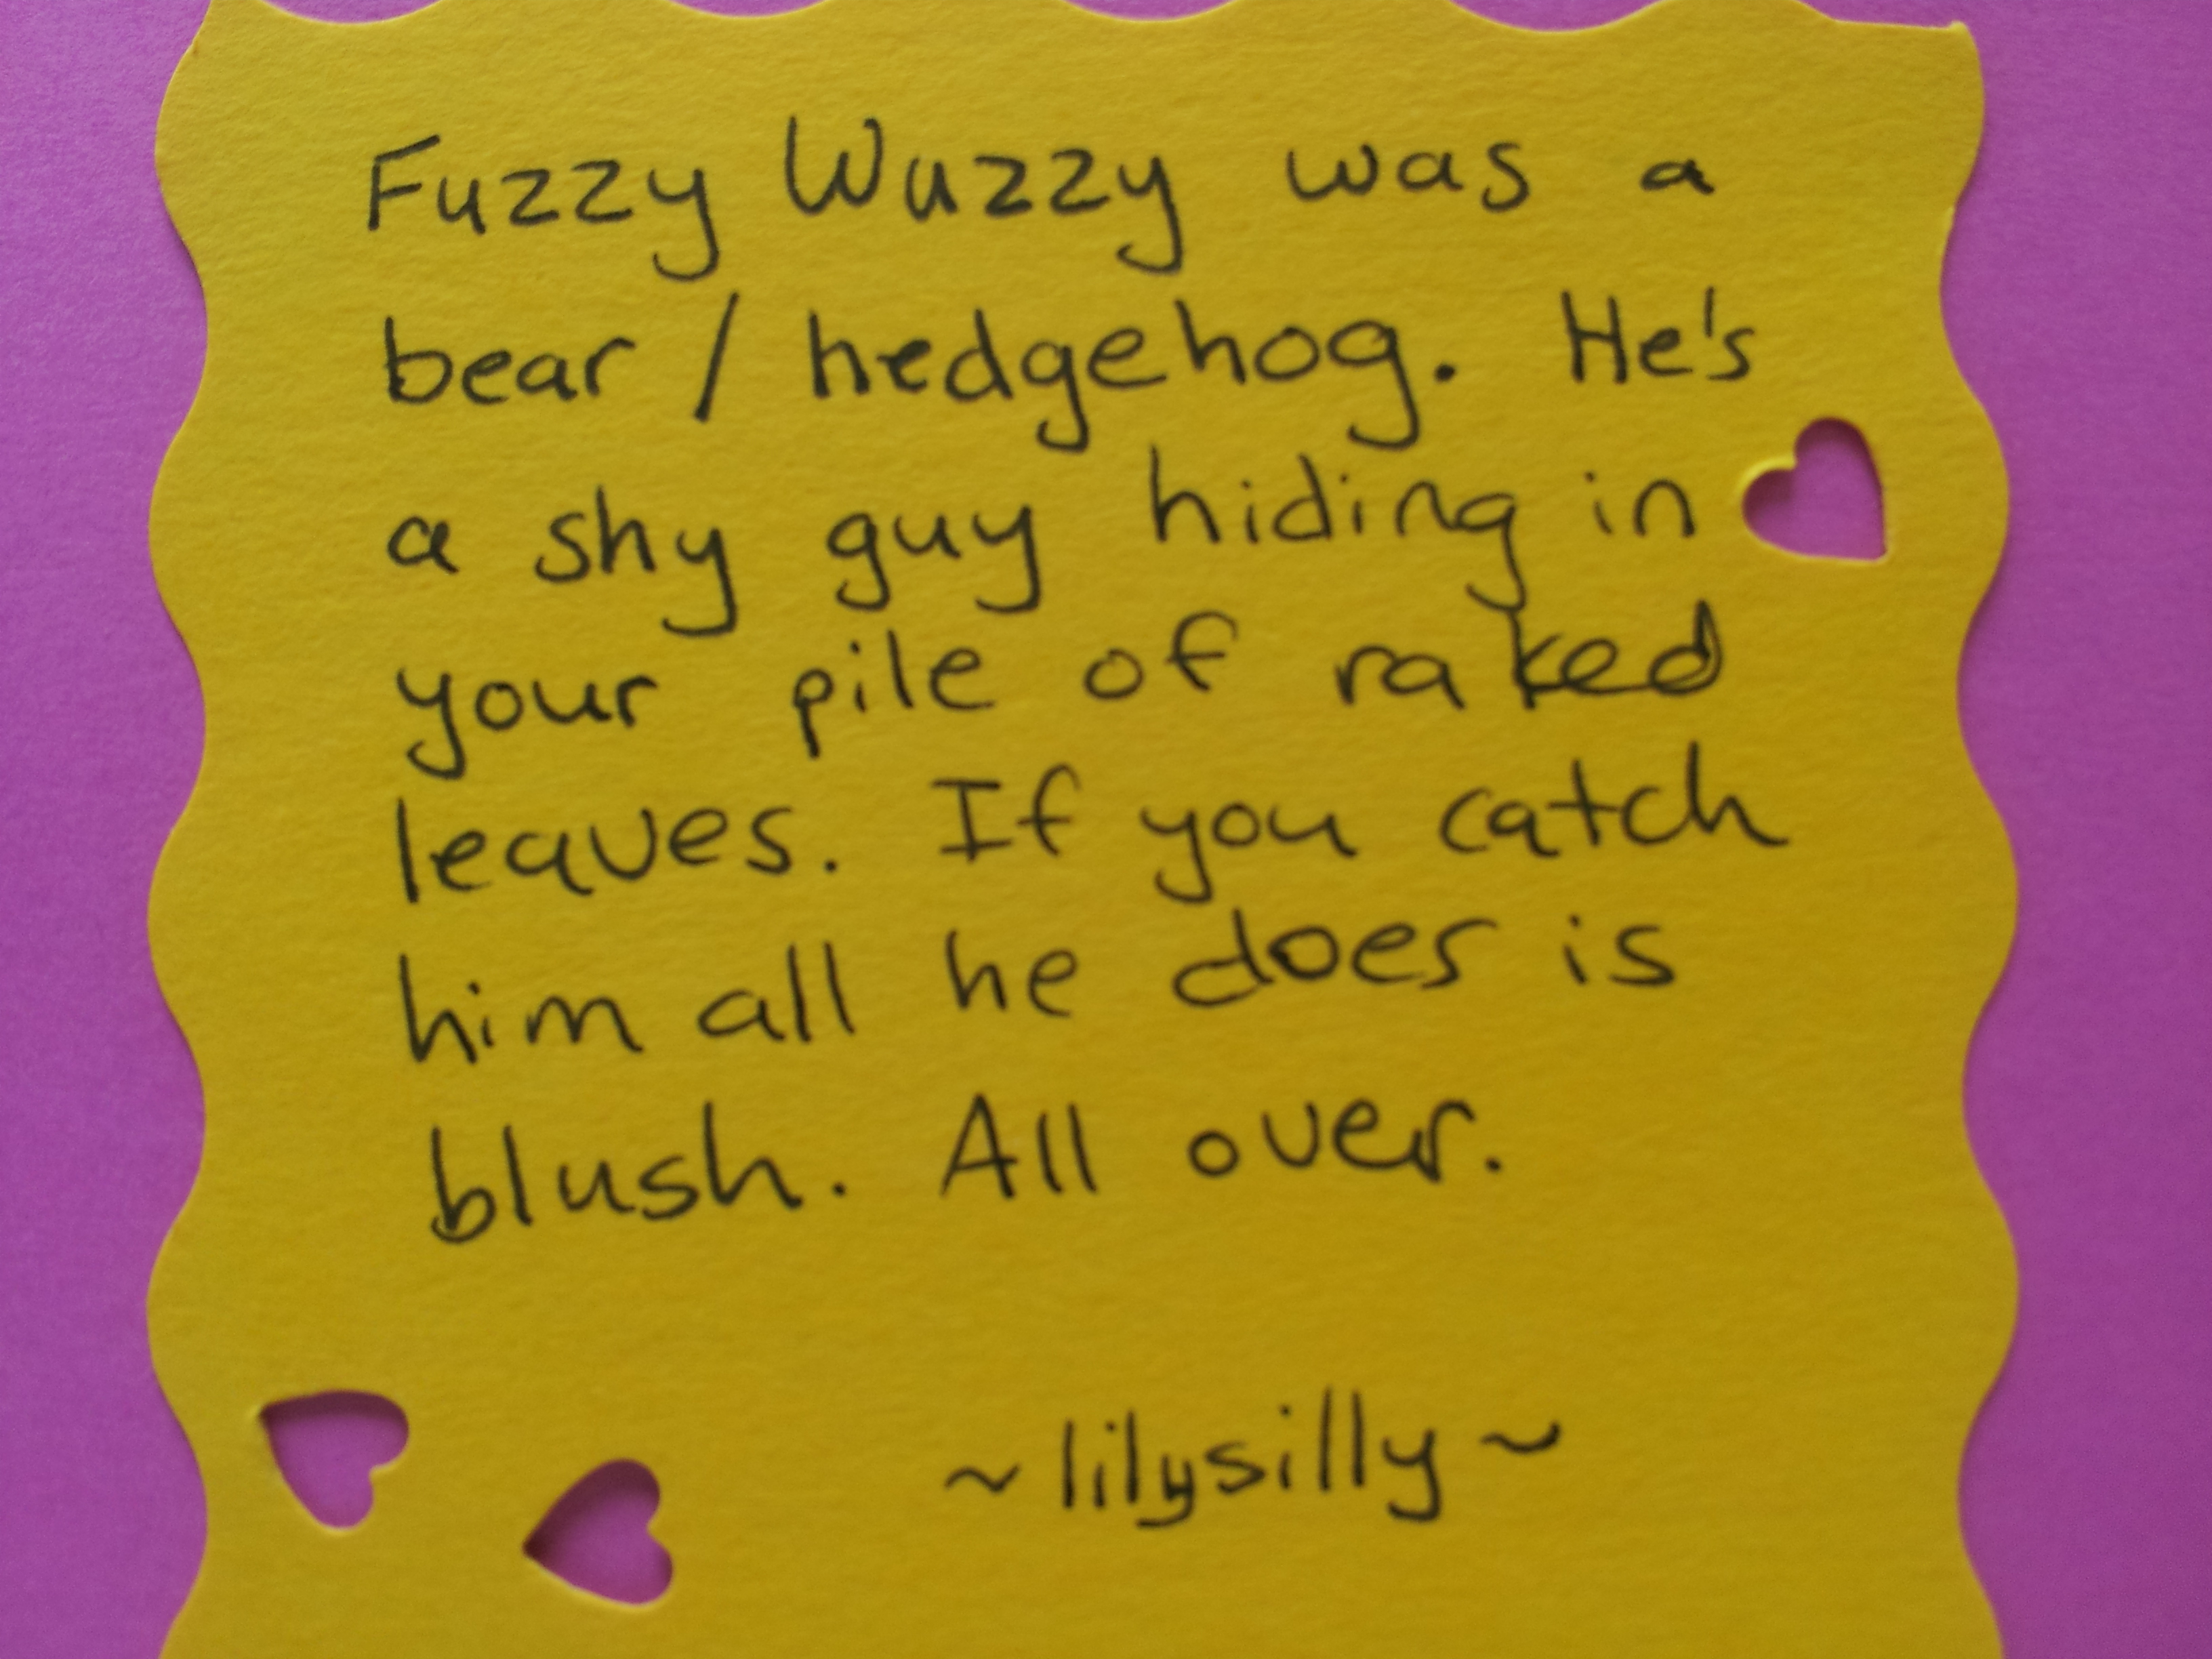 Fuzzy Wuzzy was a
bear / hedgehog. He's
a shy guy hiding in
your pile of raked
leaves. If you catch
him all he does is
blush. All over.
~lilysilly~